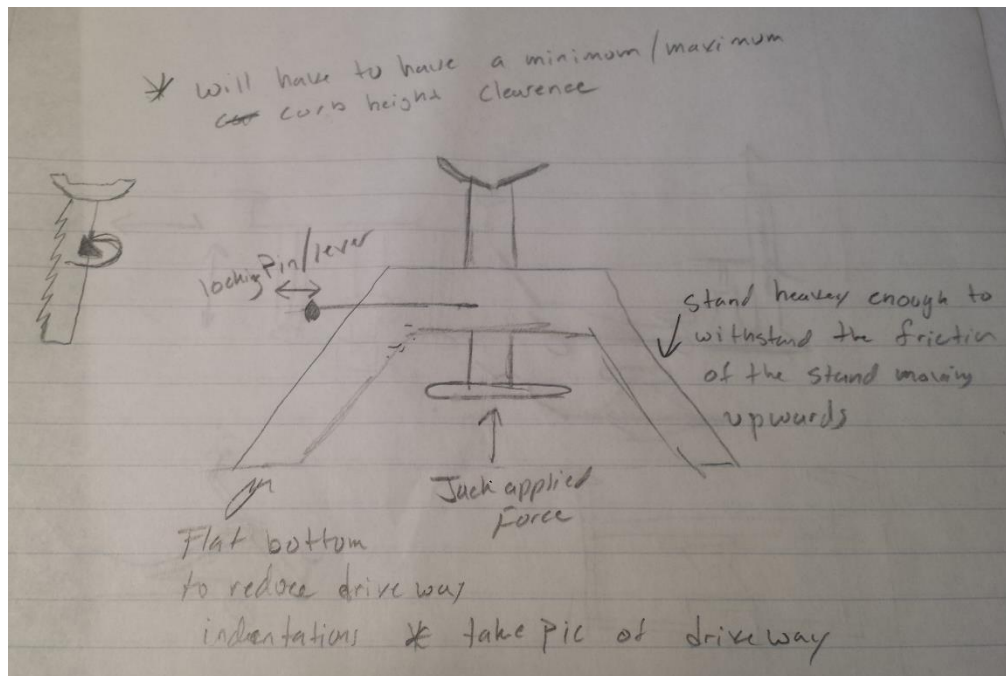 * will have to have a minimum/maximum
curb height clearence
locking Pin/lever
stand heavey enough to
withstand the friction
of the stand moving
upwards
Jack applied
Force
Flat bottom
to reduce drive way
indentations * take pic of driveway